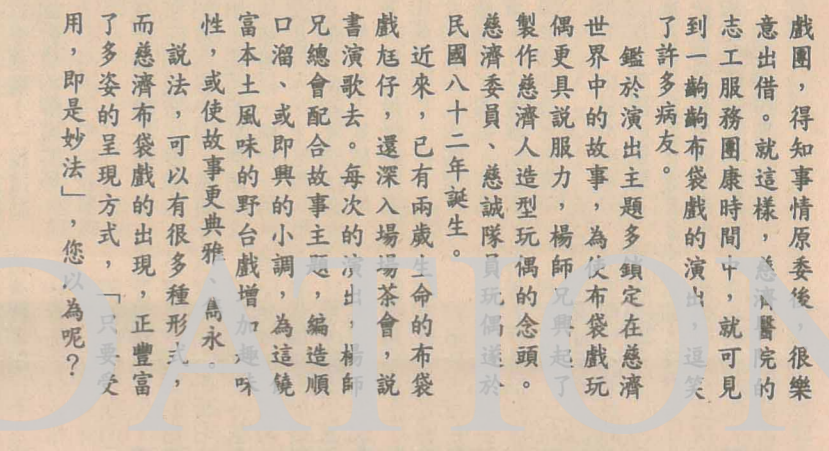 戲團，得知事情原委後，很樂
意出借。就這樣，慈濟醫院的
志工服務團康時間中，就可見
到一齣齣布袋戲的演出，逗笑
了許多病友。
鑑於演出主題多鎖定在慈濟
世界中的故事，為使布袋戲玩
偶更具說服力，楊師兄興起了
製作慈濟人造型玩偶的念頭。
慈濟委員、慈誠隊員玩偶遂於
民國八十二年誕生。
近來，已有兩歲生命的布袋
戲尪仔，還深入場場茶會，說
書演歌去。每次的演出，楊師
兄總會配合故事主題，編造順
口溜、或即興的小調，為這饒
富本土風味的野台戲增加趣味
性，或使故事更典雅、雋永。
說法，可以有很多種形式，
而慈濟布袋戲的出現，正豐富
了多姿的呈現方式，「只要受
用，即是妙法」，您以為呢？
DATION